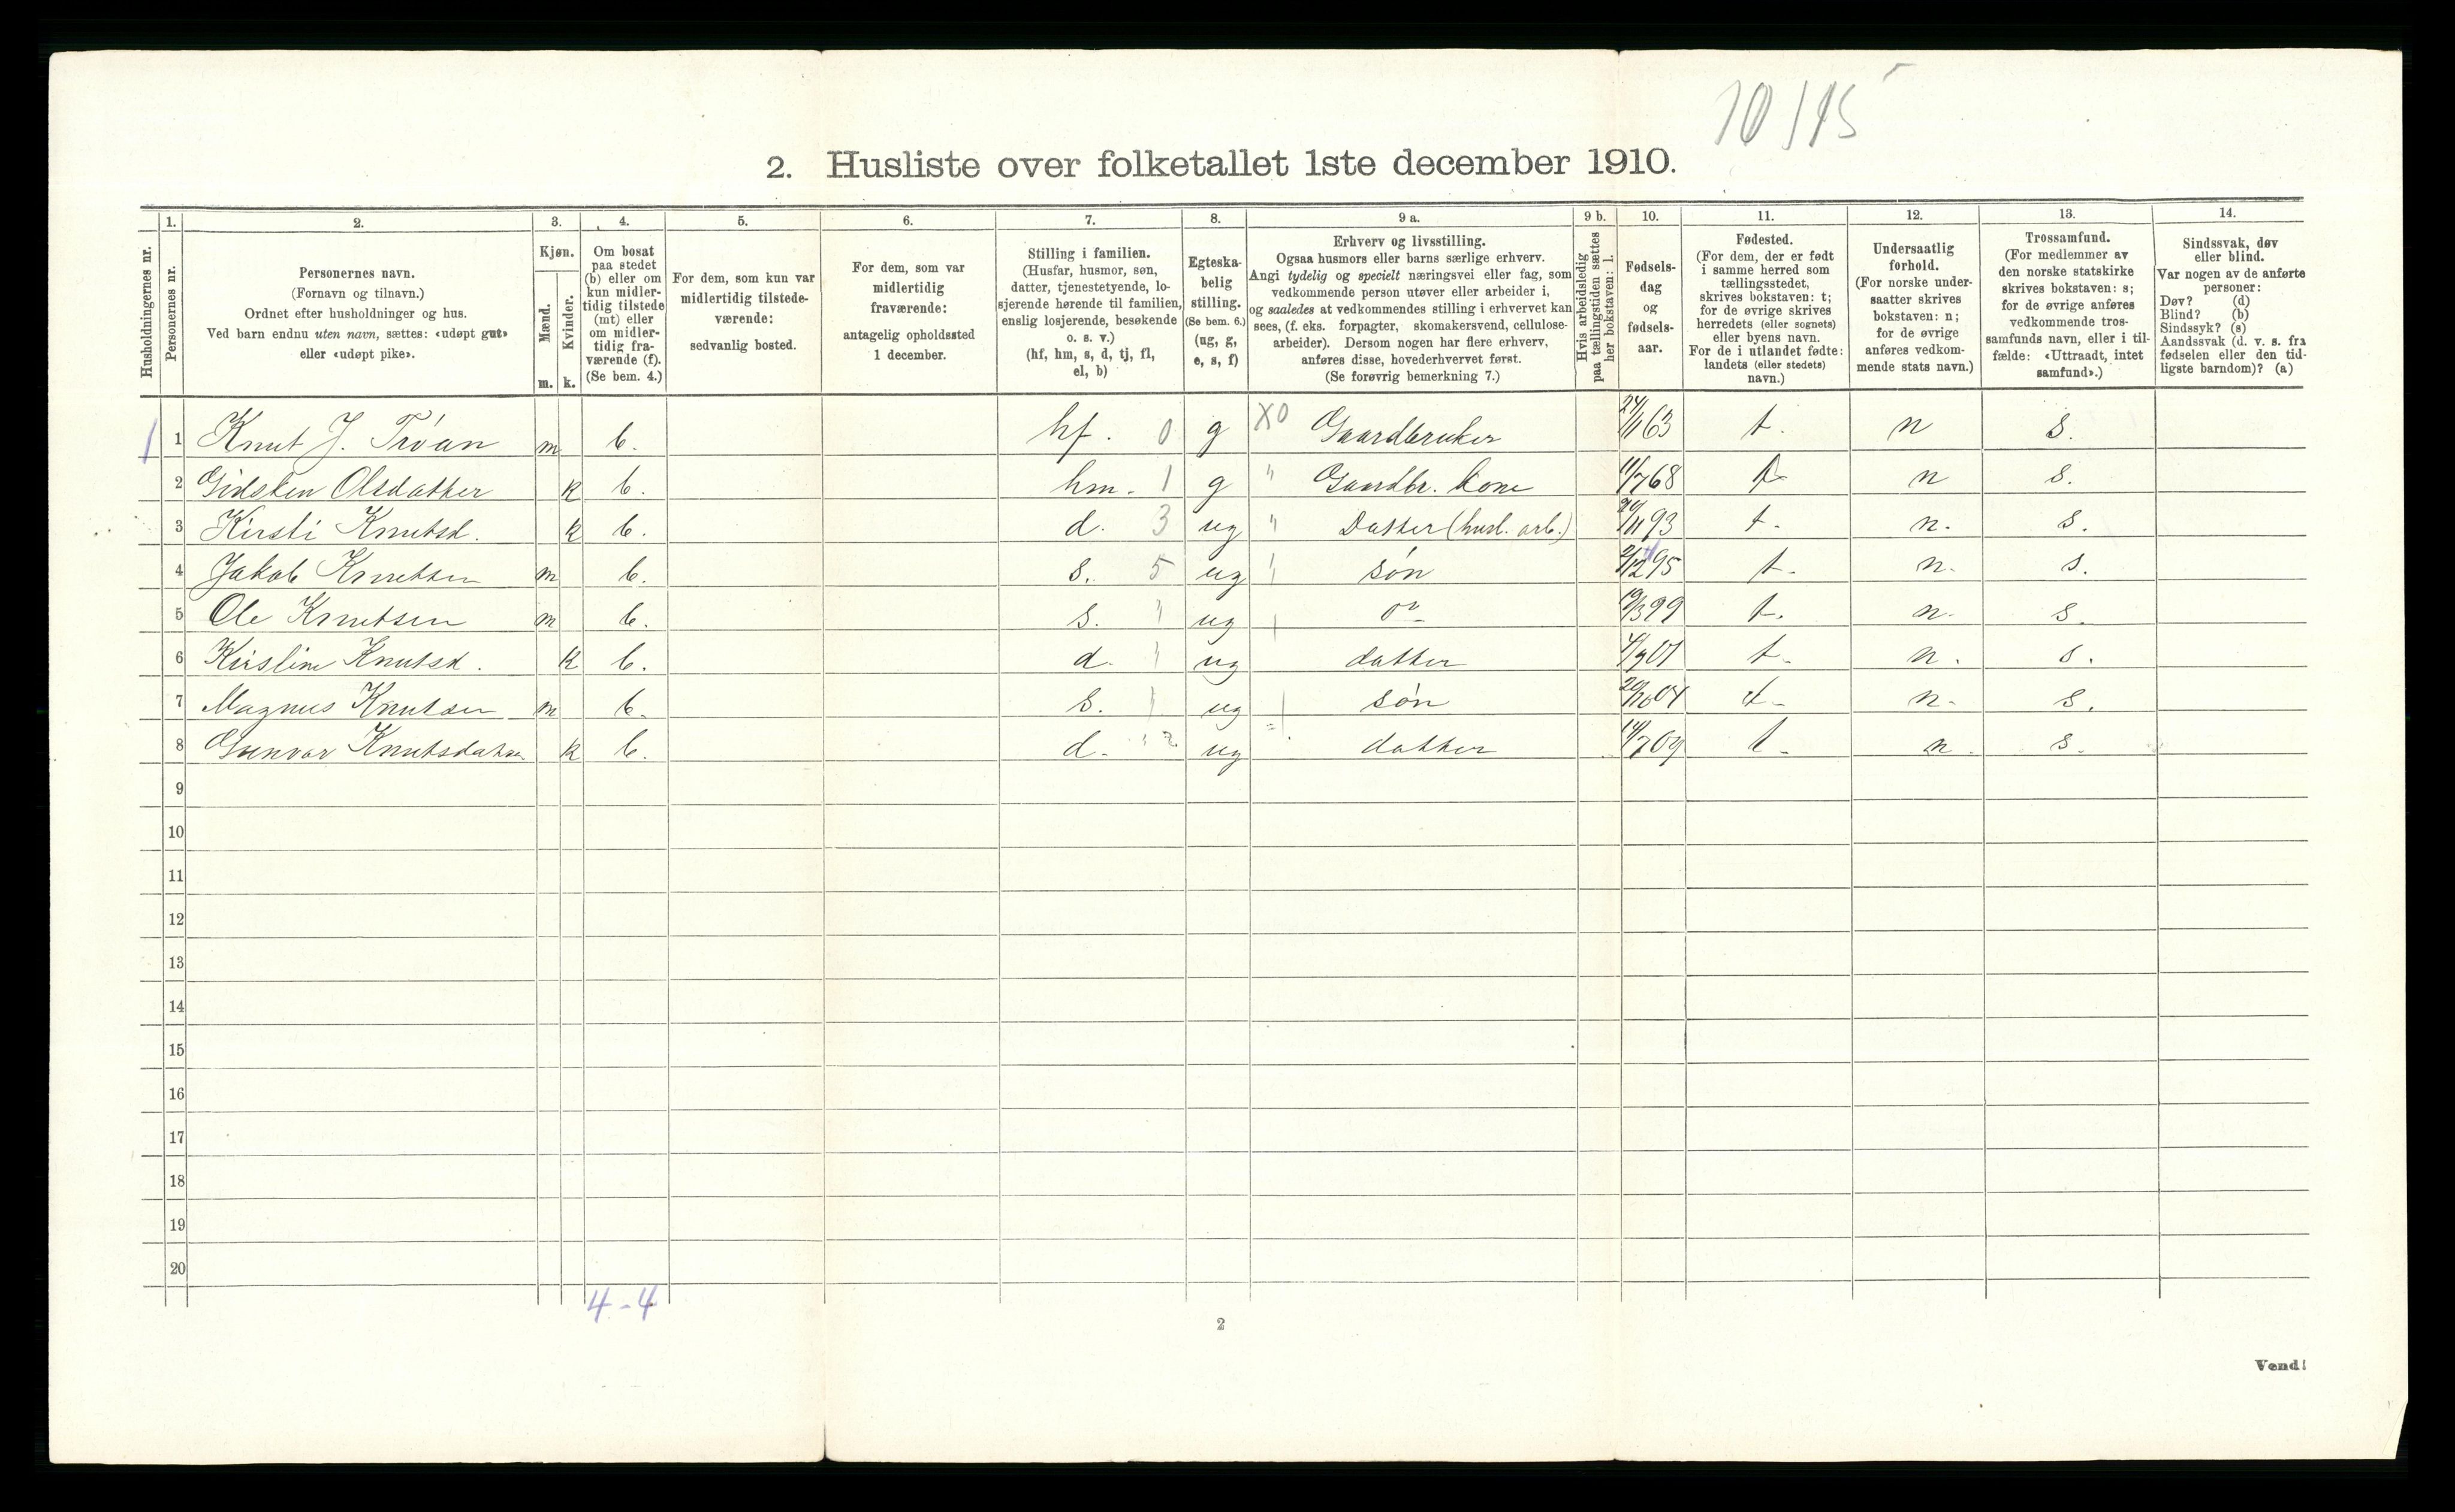 10/15
2. Husliste over folketallet 1ste december 1910.
Husholdningernes nr.
1. Personernes nr.
2. Personernes navn.
(Fornavn og tilnavn.)
Ordnet efter husholdninger og hus.
Ved barn endnu uten navn, sættes: «udøpt gut»
eller «udøpt pike».
3. Kjøn.
Mænd. m.
Kvinder. k.
4. Om bosat
paa stedet
(b) eller om
kun midler-
tidig tilstede
(mt) eller
om midler-
tidig fra-
værende (f).
(Se bem. 4.)
5. For dem, som kun var
midlertidig tilstede-
værende:
sedvanlig bosted.
6. For dem, som var
midlertidig
fraværende:
antagelig opholdssted
1 december.
7. Stilling i familien.
(Husfar, husmor, søn,
datter, tjenestetyende, lo-
sjerende hørende til familien,
enslig losjerende, besøkende
o. s. v.)
(hf, hm, s, d, tj, fl,
el, b)
8. Egteska-
belig
stilling.
(Se bem. 6.)
(ug, g,
e, s, f)
9 a. Erhverv og livsstilling.
Ogsaa husmors eller barns særlige erhverv.
Angi tydelig og specielt næringsvei eller fag, som
vedkommende person utøver eller arbeider i,
og saaledes at vedkommendes stilling i erhvervet kan
sees, (f. eks. forpagter, skomakersvend, cellulose-
arbeider). Dersom nogen har flere erhverv,
anføres disse, hovederhvervet først.
(Se forøvrig bemerkning 7.)
9 b. Hvis arbeidsledig
paa tællingstiden sættes
her bokstaven: l.
10. Fødsels-
dag
og
fødsels-
aar.
11. Fødested.
(For dem, der er født
i samme herred som
tællingsstedet,
skrives bokstaven: t;
for de øvrige skrives
herredets (eller sognets)
eller byens navn.
For de i utlandet fødte:
landets (eller stedets)
navn.)
12. Undersaatlig
forhold.
(For norske under-
saatter skrives
bokstaven: n;
for de øvrige
anføres vedkom-
mende stats navn.)
13. Trossamfund.
(For medlemmer av
den norske statskirke
skrives bokstaven: s;
for de øvrige anføres
vedkommende tros-
samfunds navn, eller i til-
fælde: «Uttraadt, intet
samfund».)
14. Sindssvak, døv
eller blind.
Var nogen av de anførte
personer:
Døv? (d)
Blind? (b)
Sindssyk? (s)
Aandssvak (d. v. s. fra
fødselen eller den tid-
ligste barndom)? (a)
1 1 Knut J. Tróan m b. hf. 0 g X0 Gaardbruker 24/11 63 t. n s.
2 Gidsken Olsdatter k b. hm. 1 g " Gaardbr. kone 11/7 68 t n s.
3 Kirsti Knutsd. k b. d. 3 ug " Datter (husl. arb.) 93 t. n. s.
4 Jakob Knutsen m b. s. 5 ug søn 2/12 95 t. n. s.
5 Ole Knutsen m b. s. ug do 19/3 99 t. n. s.
6 Kirstine Knutsd. k b. d. ug datter 01 t. n. s.
7 Magnus Knutsen m b. s. ug søn 20/10 04 t. n. s.
8 Gunvor Knutsdatter k b. d. ug datter 14/7 09 t. n. s.
9
10
11
12
13
14
15
16
17
18
19
20
4-4
2
Vend!